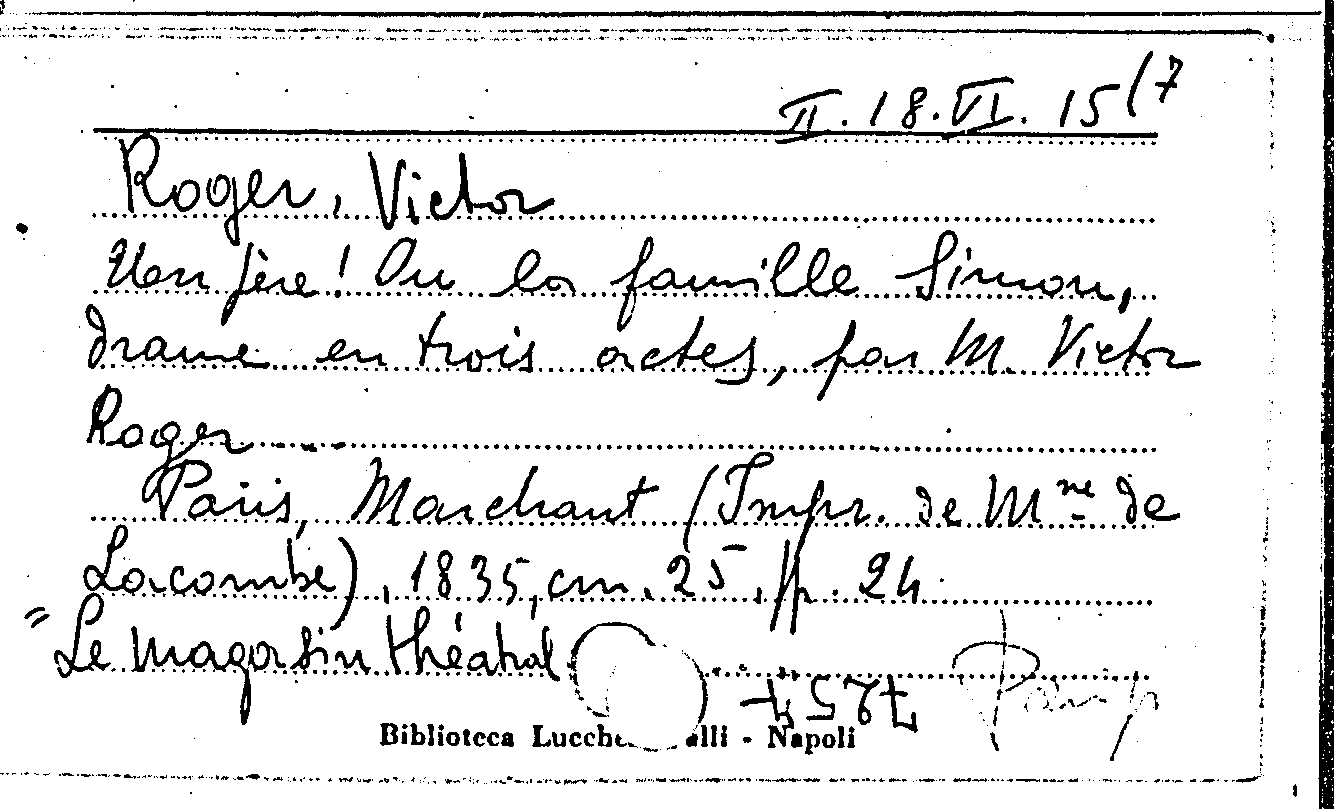 II.18.VI.15(7
Roger, Victor
père! Ou la famille Simon,
drame en trois actes, par M. Victor
Roger
Paris, Marchant (Impr. de Mme de
Lacombe), 1835, cm. 25, p. 24.
"Le magasin théatral
Biblioteca Lucche alli - Napoli